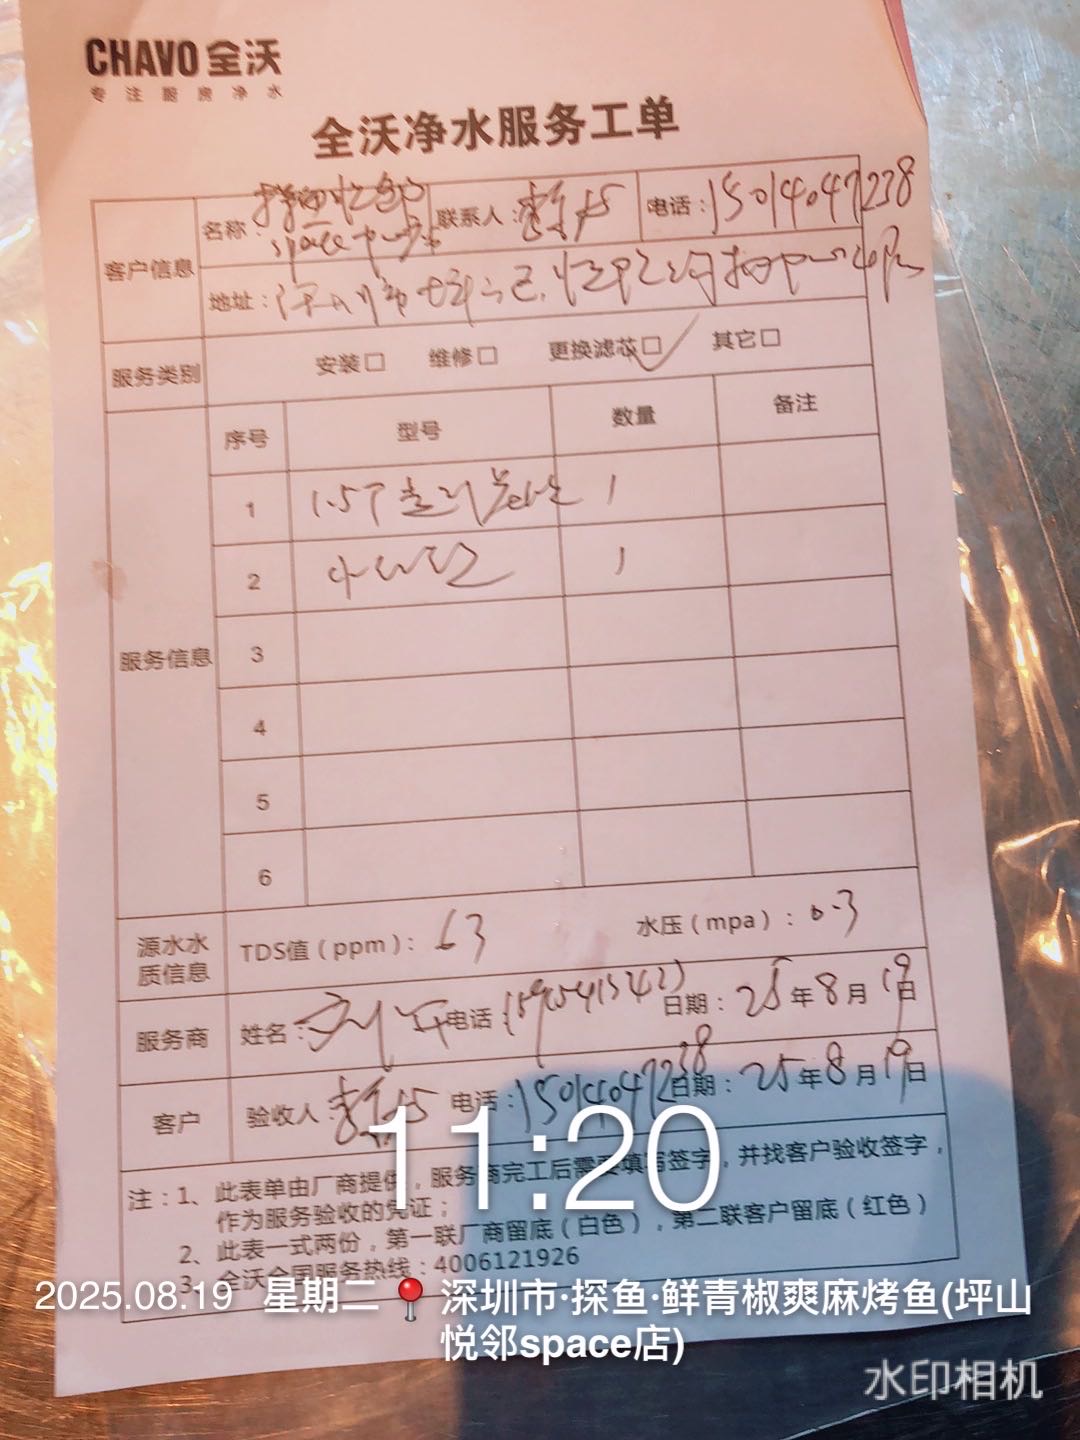 CHAVO 全沃
专注厨房净水
全沃净水服务工单
客户信息
名称: space 联系人: 电话: 15014047238
地址: 深圳市坪山区
服务类别 安装□ 维修□ 更换滤芯□✓ 其它□
服务信息
序号 型号 数量 备注
1 1.5T 1
2 1
3
4
5
6
源水水质信息 TDS值(ppm): 63 水压(mpa): 0.3
服务商 姓名: 电话: 日期: 25年8月19日
客户 验收人: 电话: 15014047238 日期: 25年8月19日
注:1、此表单由厂商提供,服务商完工后需要填写签字,并找客户验收签字,
作为服务验收的凭证;
2、此表一式两份,第一联厂商留底(白色),第二联客户留底(红色)
3、全沃全国服务热线:4006121926
11:20
2025.08.19 星期二 深圳市·探鱼·鲜青椒爽麻烤鱼(坪山
悦邻space店)
水印相机